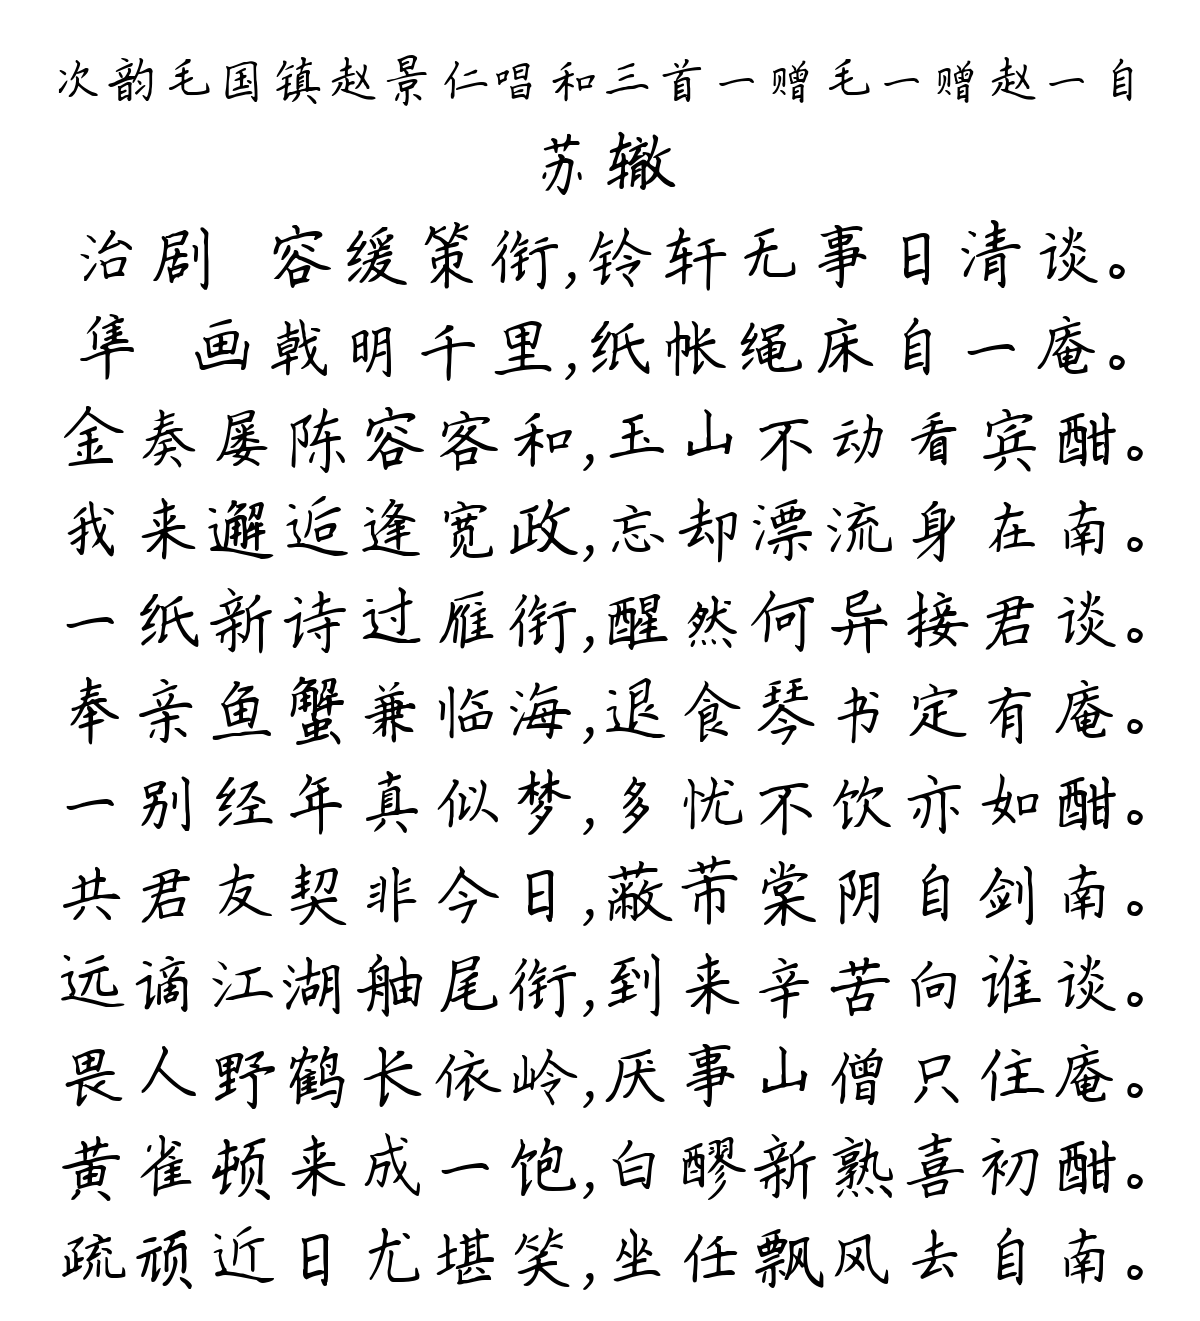 次韵毛国镇赵景仁唱和三首一赠毛一赠赵一自
苏辙
治剧 容缓策衔,铃轩无事日清谈。
隼 画戟明千里,纸帐绳床自一庵。
金奏屡陈容客和,玉山不动看宾酣。
我来邂逅逢宽政,忘却漂流身在南。
一纸新诗过雁衔,醒然何异接君谈。
奉亲鱼蟹兼临海,退食琴书定有庵。
一别经年真似梦,多忧不饮亦如酣。
共君友契非今日,蔽芾棠阴自剑南。
远谪江湖舳尾衔,到来辛苦向谁谈。
畏人野鹤长依岭,厌事山僧只住庵。
黄雀顿来成一饱,白醪新熟喜初酣。
疏顽近日尤堪笑,坐任飘风去自南。